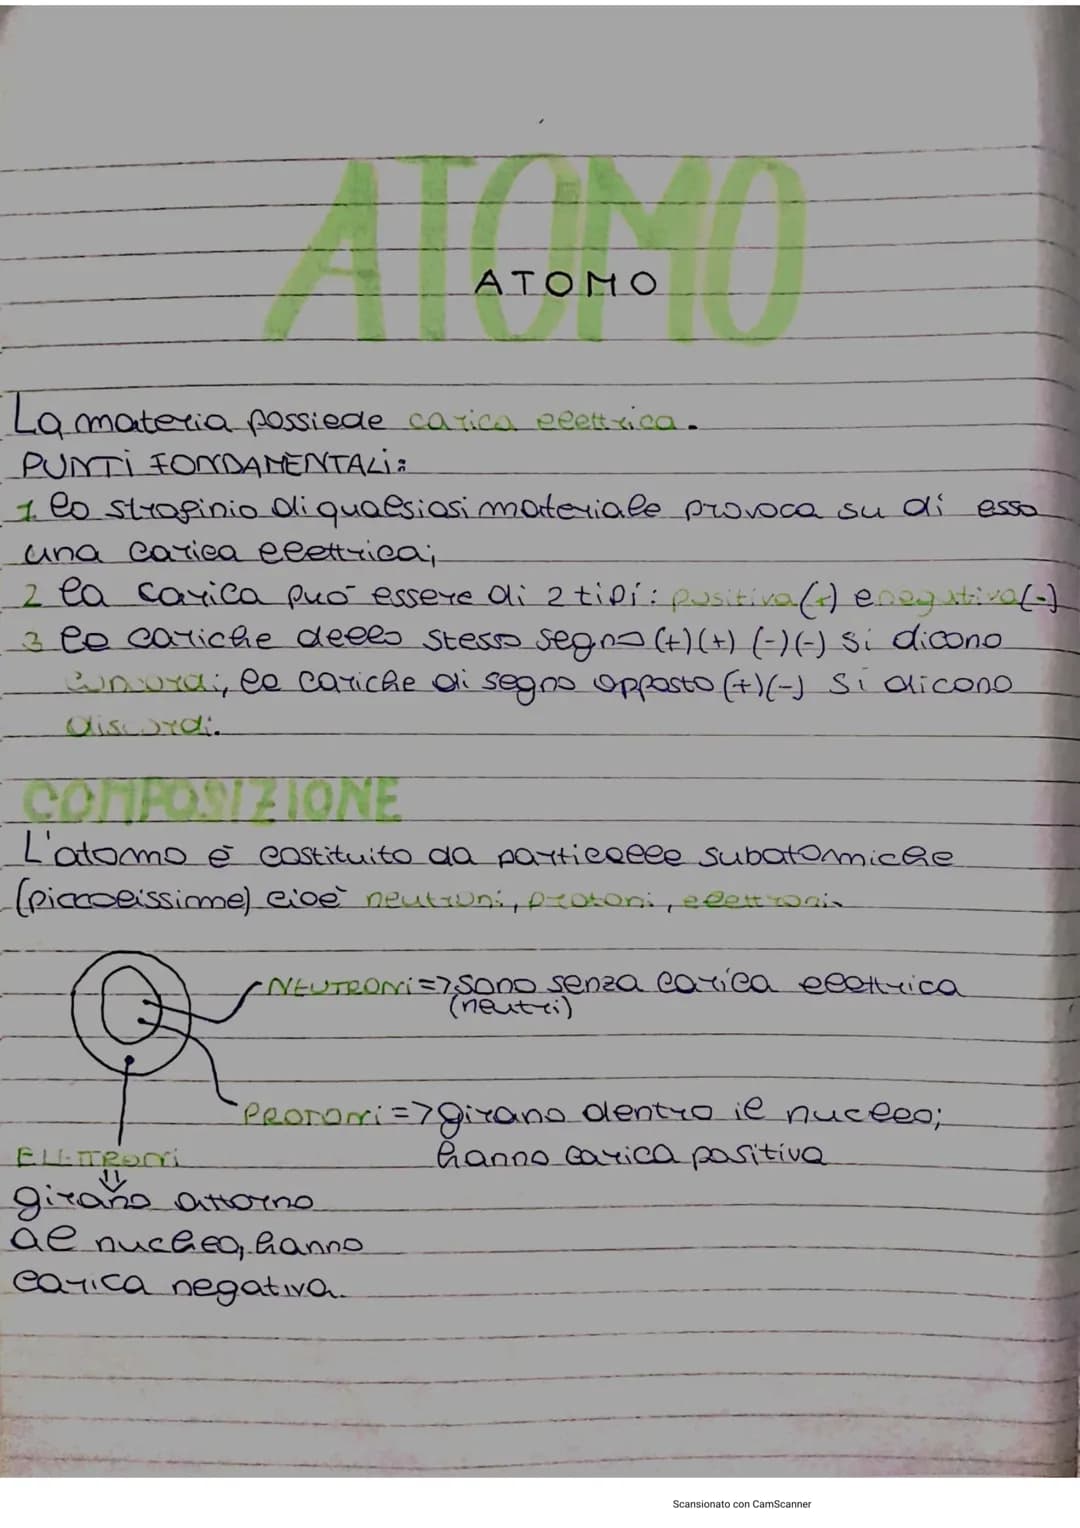 ATOMO
ATOMO
La materia possiede carica elettrica.
PUNTI FONDAMENTALI:
1 lo strofinio di qualsiasi materiale provoca su di esso
una carica elettrica;
2 la carica può essere di 2 tipi: positiva (+) e negativa (-)
3 le cariche dello stesso segno (+)(+) (-)(-) si dicono
concordi; le cariche di segno opposto (+)(-) si dicono
discordi.
COMPOSIZIONE
L'atomo è costituito da particelle subatomiche
(piccolissime) cioè neutroni, protoni, elettroni.
NEUTRONI => sono senza carica elettrica
(neutri)
PROTONI => girano dentro il nucleo;
hanno carica positiva
ELETTRONI
girano attorno
al nucleo, hanno
carica negativa.
Scansionato con CamScanner